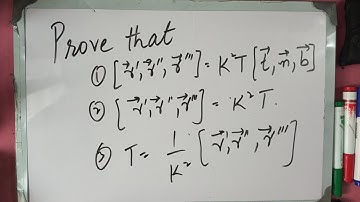 Prove that
① [r⃗', r⃗'', r⃗'''] = K²T [t⃗, n⃗, b⃗]
② [r⃗', r⃗'', r⃗'''] = K²T.
③ T = 1/K² [r⃗', r⃗'', r⃗''']